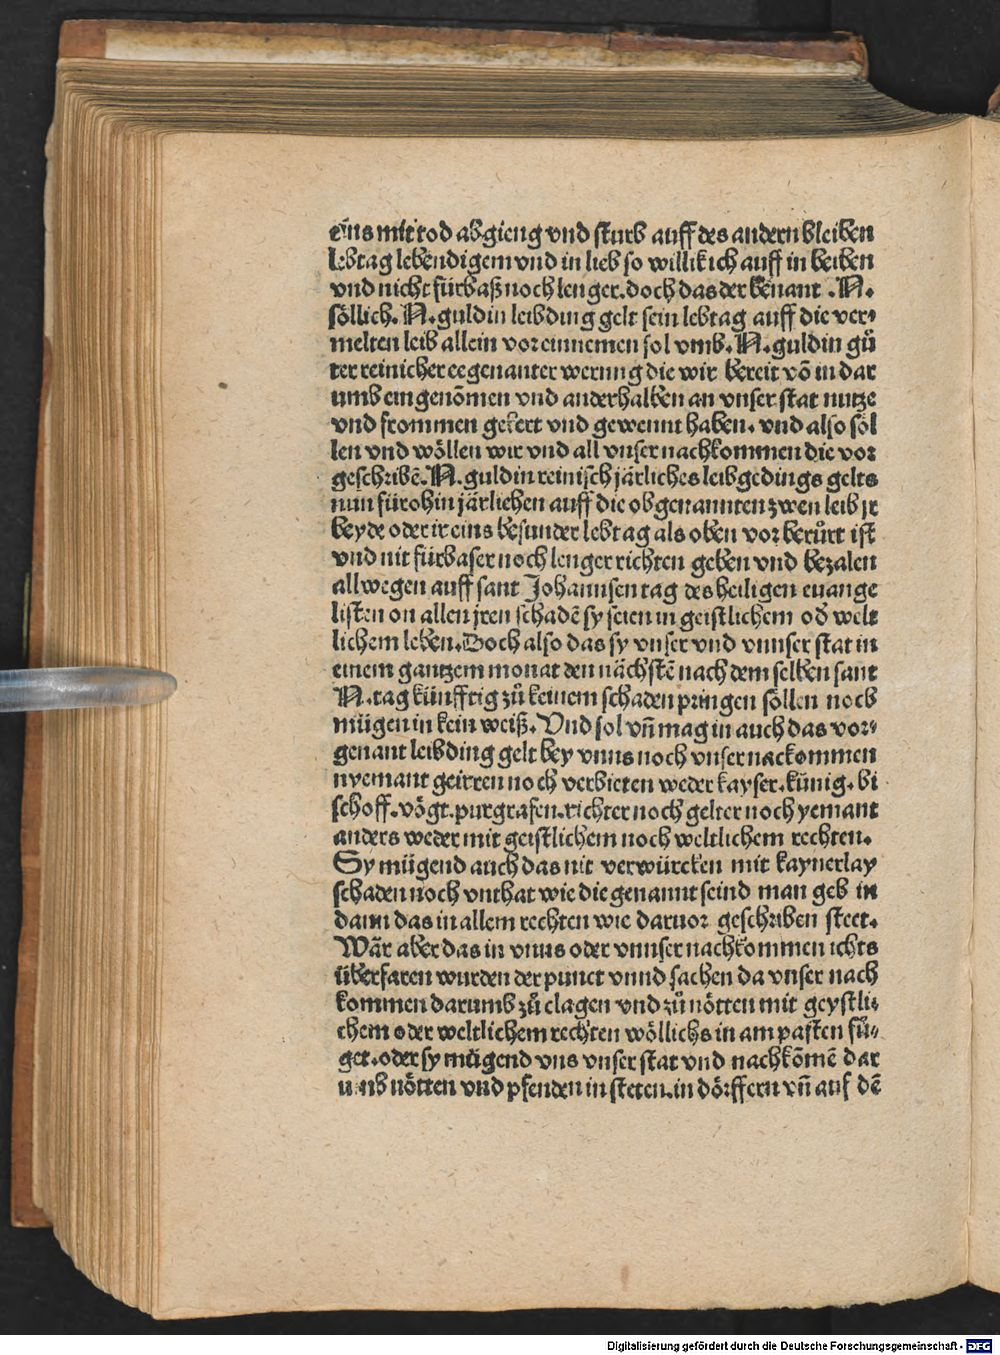 eins mit tod abgieng vnd sturb auff des andern bleiben
lebtag lebendigem vnd in lieb so willik ich auff in beiben
vnd nicht fürbaß noch lenger. doch das der benant .N.
söllich. N. guldin leibding gelt sein lebtag auff die ver⸗
melten leib allein vor einnemen sol vmb. N. guldin gů
ter reinicher eegenanter werung die wir bereit võ in dar
umb eingenõmen vnd anderhalben an vnser stat nutze
vnd frommen gekert vnd gewennt haben. vnd also söl
len vnd wöllen wir vnd all vnser nachkommen die vor
geschribẽ. N. guldin reinisch järliches leibgedings gelts
nun fürohin järlichen auff die obgenannten zwen leib jr
beyde oder ir eins besunder lebtag als oben vor berůrt ist
vnd nit fürbaser noch lenger richten geben vnd bezalen
allwegen auff sant Johannsen tag des heiligen euange
listen on allen jren schadẽ sy seien in geistlichem oď welt
lichem leben. Doch also das sy vnser vnd vnnser stat in
einem gantzem monat den nächstẽ nach dem selben sant
N. tag künfftig zů keinem schaden pringen söllen noch
mügen in kein weiß. Vnd sol vñ mag in auch das vor⸗
genant leibding gelt bey vnns noch vnser nackommen
nyemant geirren noch verbieten weder kayser. künig. bi
schoff. vögt. purgrafen. richter noch gelter noch yemant
anders weder mit geistlichem noch weltlichem rechten.
Sy mügend auch das nit verwürcken mit kaynerlay
schaden noch vnthat wie die genannt seind man geb in
dann das in allem rechten wie daruor geschriben steet.
Wär aber das in vnns oder vnnser nachkommen ichts
überfaren wurden der punct vnnd sachen da vnser nach
kommen darumb zů clagen vnd zů nötten mit geystli⸗
chem oder weltlichem rechten wöllichs in am pasten fů⸗
get. oder sy mügend vns vnser stat vnd nachkõmẽ dar
umb nötten vnd pfenden in steten. in dörffern vñ auf dẽ
Digitalisierung gefördert durch die Deutsche Forschungsgemeinschaft - DFG